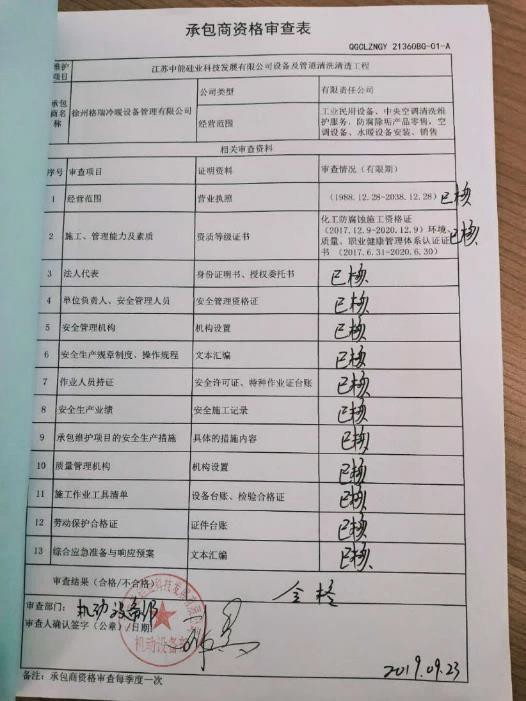 承包商资格审查表
QGCLZNGY 21360BG-01-A
维护项目 江苏中能硅业科技发展有限公司设备及管道清洗清透工程
承包商名称 徐州格瑞冷暖设备管理有限公司 公司类型 有限责任公司
经营范围 工业民用设备、中央空调清洗维护服务，防腐除垢产品零售，空调设备、水暖设备安装、销售
相关审查资料
序号 审查项目 证明资料 审查情况（有限期）
1 经营范围 营业执照 （1988.12.28-2038.12.28） 已核
2 施工、管理能力及素质 资质等级证书 化工防腐蚀施工资格证
（2017.12.9-2020.12.9）环境、
质量、职业健康管理体系认证证
书（2017.6.31-2020.6.30） 已核
3 法人代表 身份证明书、授权委托书 已核
4 单位负责人、安全管理人员 安全管理资格证 已核
5 安全管理机构 机构设置 已核
6 安全生产规章制度、操作规程 文本汇编 已核
7 作业人员持证 安全许可证、特种作业证台账 已核
8 安全生产业绩 安全施工记录 已核
9 承包维护项目的安全生产措施 具体的措施内容 已核
10 质量管理机构 机构设置 已核
11 施工作业工具清单 设备台账、检验合格证 已核
12 劳动保护合格证 证件台账 已核
13 综合应急准备与响应预案 文本汇编 已核
审查结果（合格/不合格） 合格
审查部门： 机动设备部
审查人确认签字（公章）/日期
机动设备部
2019.09.23
备注：承包商资格审查每季度一次